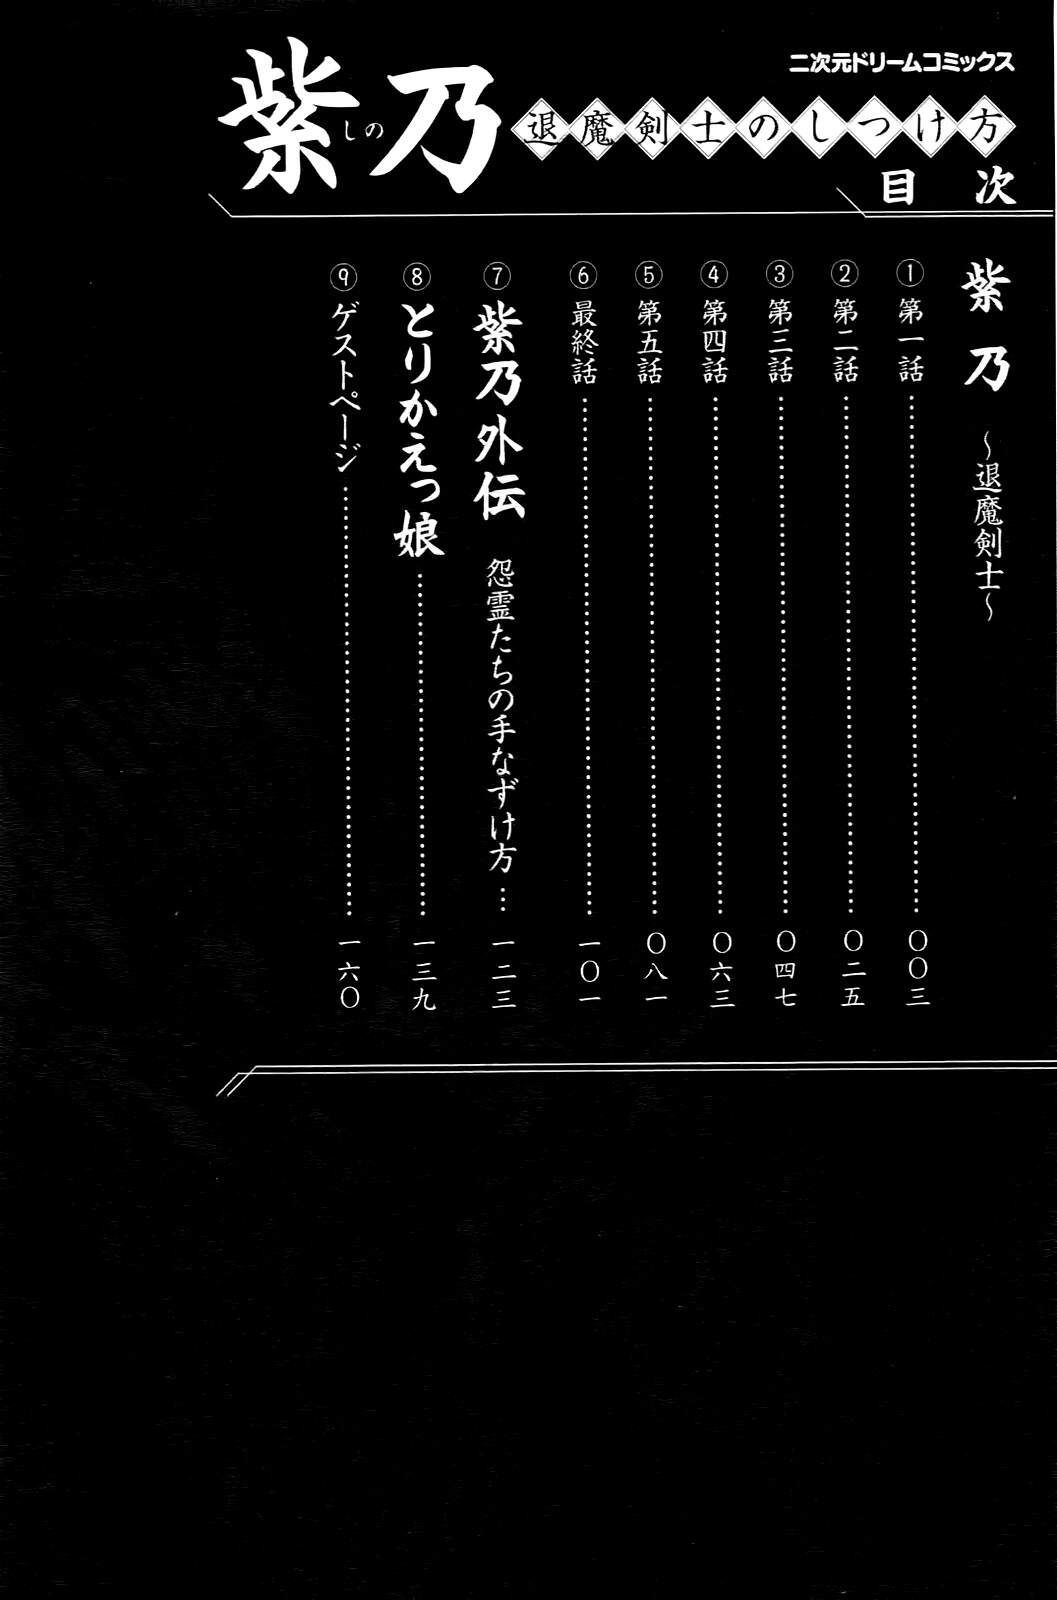 二次元ドリームコミックス
紫乃
しの
退魔剣士のしつけ方
目次
紫乃 ～退魔剣士～
① 第一話 …… 〇〇三
② 第二話 …… 〇二五
③ 第三話 …… 〇四七
④ 第四話 …… 〇六三
⑤ 第五話 …… 〇八一
⑥ 最終話 …… 一〇一
⑦ 紫乃外伝 怨霊たちの手なずけ方 … 一二三
⑧ とりかえっ娘 …… 一三九
⑨ ゲストページ …… 一六〇